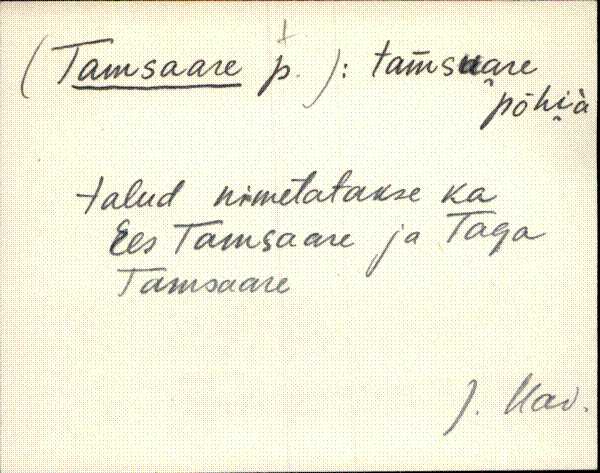 (Tamsaare p.): tam̄suare
põhi̭a̭
talud nimetatakse ka
Ees Tamsaare ja Taga
Tamsaare
J. Mav.